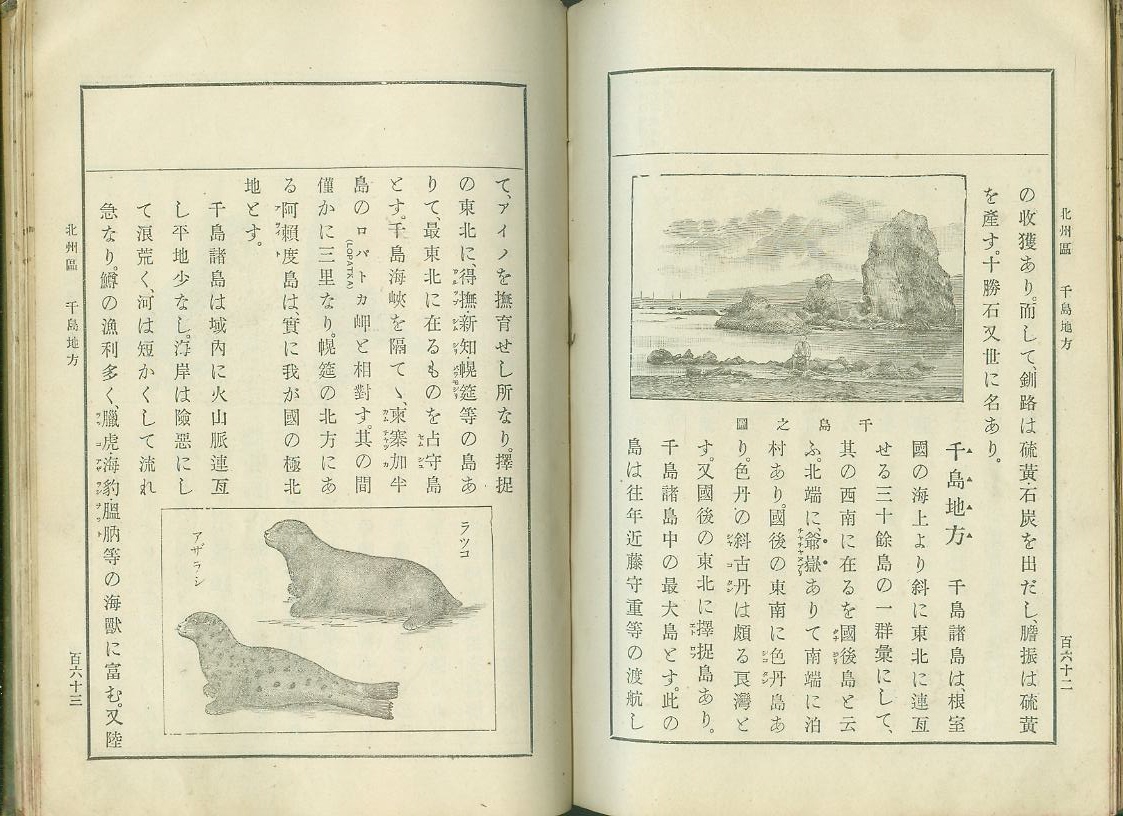 北州區　千島地方
百六十二
の收獲あり。而して、釧路は硫黄・石炭を出だし、膽振は硫黄
を產す。十勝石又世に名あり。
千島之圖
千島地方　千島諸島は、根室
國の海上より斜に東北に連亙
せる三十餘島の一群彙にして、
其の西南に在るを國後島と云
ふ。北端に、爺嶽ありて南端に泊
村あり。國後の東南に色丹島あ
り。色丹の斜古丹は頗る良灣と
す。又國後の東北に擇捉島あり。
千島諸島中の最大島とす。此の
島は往年近藤守重等の渡航し
て、アイノを撫育せし所なり。擇捉
の東北に、得撫・新知・幌筵等の島あ
りて、最東北に在るものを占守島
とす。千島海峽を隔てゝ、柬察加半
島のロパトカ(LOPATKA)岬と相對す。其の間
僅かに三里なり。幌筵の北方にあ
る阿頼度島は、實に我が國の極北
地とす。
千島諸島は域內に火山脈連亙
し平地少なし。海岸は險惡にし
て浪荒く、河は短かくして流れ
急なり。鱒の漁利多く、臘虎・海豹・膃肭等の海獸に富む。又陸
ラツコ
アザラシ
北州區　千島地方
百六十三